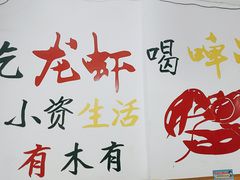 吃龙虾 喝啤
小资生活
有木有